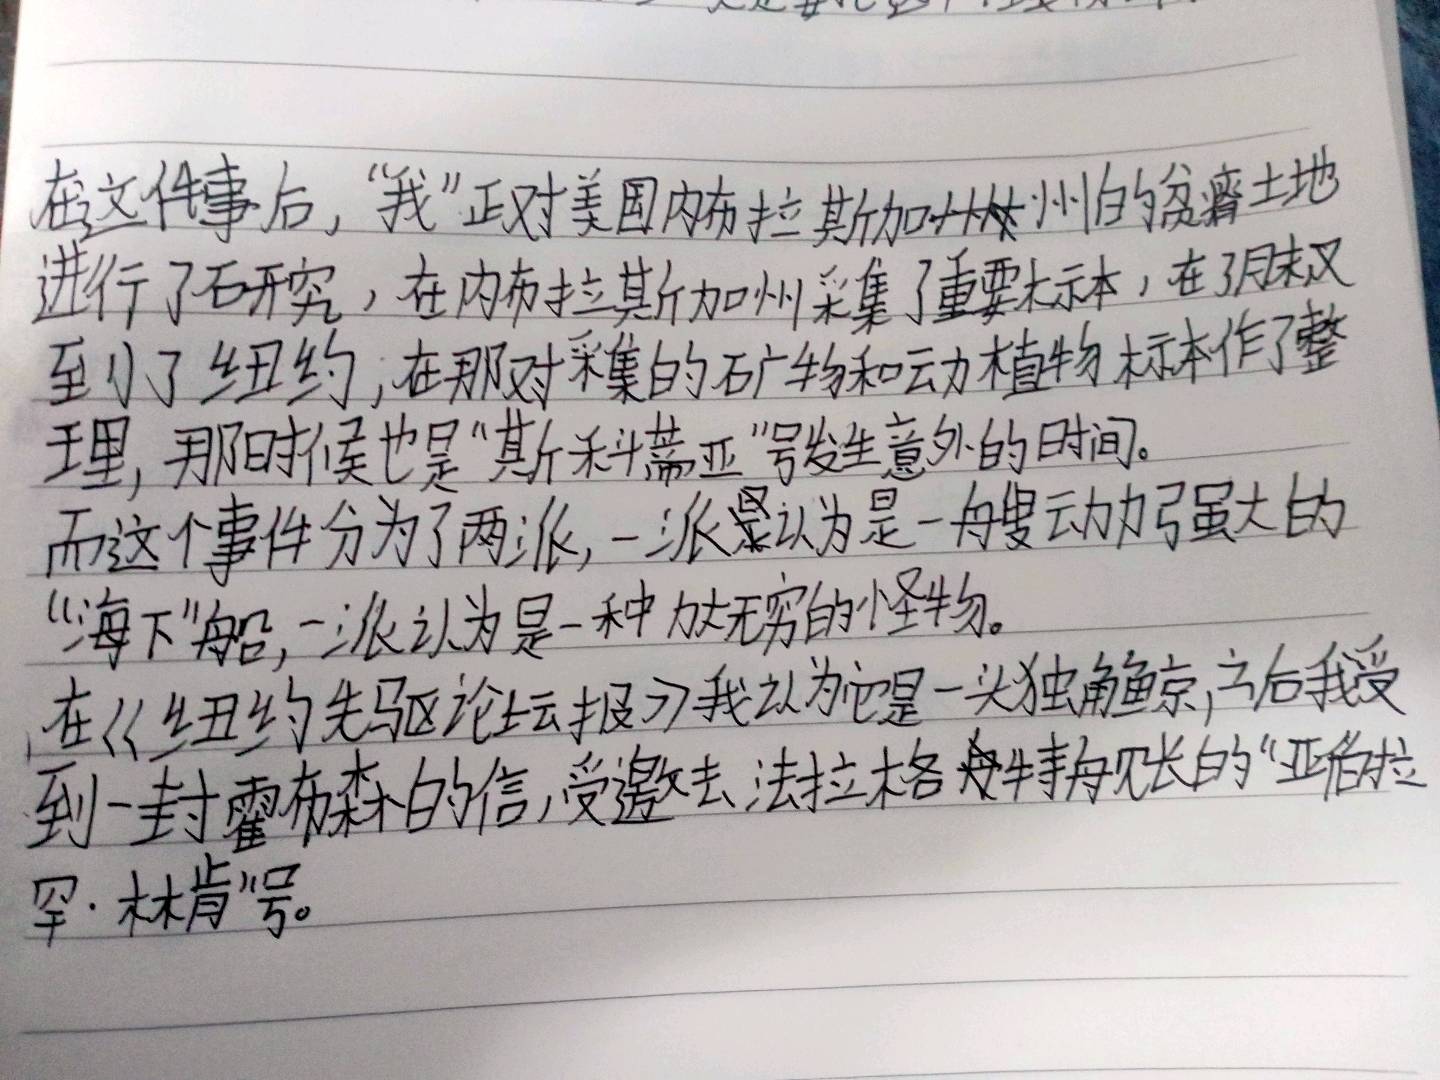 在这件事后，“我”正对美国内布拉斯加州的贫瘠土地
进行了研究，在内布拉斯加州采集了重要标本，在3月末又
到了纽约，在那对采集的矿物和动植物标本作了整
理，那时候也是“斯科蒂亚”号发生意外的时间。
而这个事件分为了两派，一派认为是一艘动力强大的
“海下”船，一派认为是一种力大无穷的怪物。
在《纽约先驱论坛报》我以为它是一头独角鲸，之后我受
到一封霍布森的信，受邀去法拉格特舰长的“亚伯拉
罕·林肯”号。